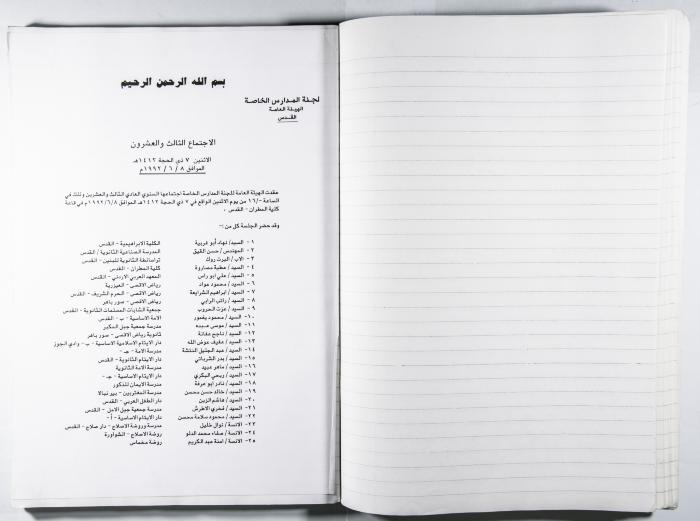 بسم الله الرحمن الرحيم
لجنة المدارس الخاصة
الهيئة العامة
القدس
الاجتماع الثالث والعشرون
الاثنين ٧ ذي الحجة ١٤١٢هـ
الموافق ٨ / ٦ / ١٩٩٢م
عقدت الهيئة العامة للجنة المدارس الخاصة اجتماعها السنوي العادي الثالث والعشرين وذلك في
الساعة -/١٦ من يوم الاثنين الواقع في ٧ ذي الحجة ١٤١٢هـ الموافق ١٩٩٢/٦/٨م في قاعة
كلية المطران - القدس .
وقد حضر الجلسة كل من :-
١ - السيد/ نهاد أبو غربية الكلية الابراهيمية - القدس
٢ - المهندس / حسن القيق المدرسة الصناعية الثانوية / القدس
٣ - الاب / البرت روك تراسانطة الثانوية للبنين - القدس
٤ - السيد / عطية مصاروة كلية المطران - القدس
٥ - السيد / علي ابو راس المعهد العربي الاردني - القدس
٦ - السيد / محمود عواد رياض الاقصى - العيزرية
٧ - السيد / ابراهيم الشرايعة رياض الاقصى - الحرم الشريف - القدس
٨ - السيد / راتب الرابي رياض الاقصى - صور باهر
٩ - السيد / عزت الحروب جمعية الشابات المسلمات الثانوية - القدس
١٠- السيد / محمود يغمور الامة الاساسية - ب - القدس
١١- السيد / موسى عبده مدرسة جمعية جبل المكبر
١٢- السيد / ناجح دفانة ثانوية رياض الاقصى - صور باهر
١٣- السيد / عفيف عوض الله دار الايتام الاسلامية الاساسية - ب - وادي الجوز
١٤- السيد / عبد الجليل النتشة مدرسة الامة - جـ -
١٥- السيد / بدر الشرباتي دار الايتام الثانوية - القدس
١٦- السيد / ماهر عبيد مدرسة الامة الثانوية
١٧- السيد / ربحي البكري دار الايتام الاساسية - جـ -
١٨- السيد / نادر ابو عرفة مدرسة الايمان للذكور
١٩- السيد / خالد حسن محسن مدرسة المغتربين - بير نبالا
٢٠- السيد / هاشم الزين دار الطفل العربي - القدس
٢١- السيد / فخري الاطرش مدرسة جمعية جبل الامل - القدس
٢٢- السيد / محمود سلامة محسن دار الايتام الاساسية - أ -
٢٣- الانسة / نوال خليل مدرسة وروضة الاصلاح - دار صلاح - القدس
٢٤- الانسة / صفاء محمد الدلو روضة الاصلاح - الشواورة
٢٥- الانسة / امنة عبد الكريم روضة مخماس